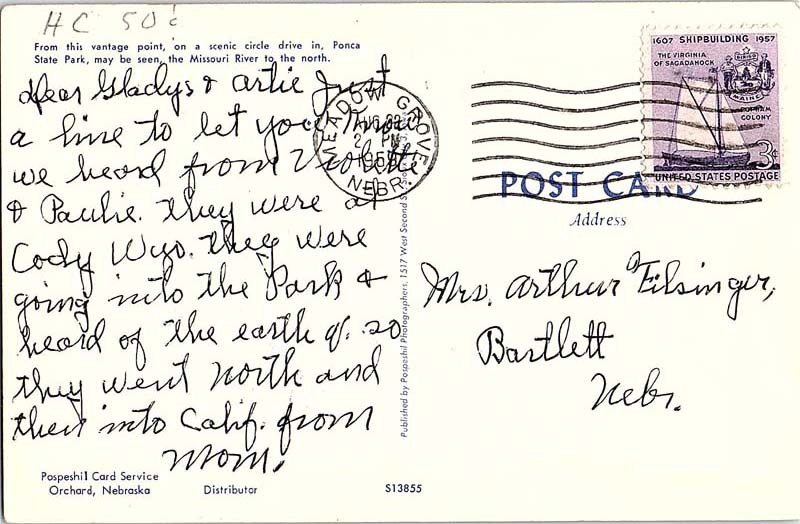 HC 50¢
From this vantage point, on a scenic circle drive in, Ponca
State Park, may be seen, the Missouri River to the north.
Dear Gladys & Artie Just
a line to let you know
we heard from Violette
& Paulie. they were at
Cody Wyo. they were
going into the Park &
heard of the earth q. so
they went North and
then into Calif. from
Mom.
Pospeshil Card Service
Orchard, Nebraska
Distributor
S13855
Published by Pospeshil Photographers, 1517 West Second St.
MEADOW GROVE
AUG
2 PM
1959
NEBR.
1607 SHIPBUILDING 1957
THE VIRGINIA
OF SAGADAHOCK
MAINE
POPHAM
COLONY
3¢
UNITED STATES POSTAGE
POST CARD
Address
Mrs. Arthur Filsinger,
Bartlett
Nebr.